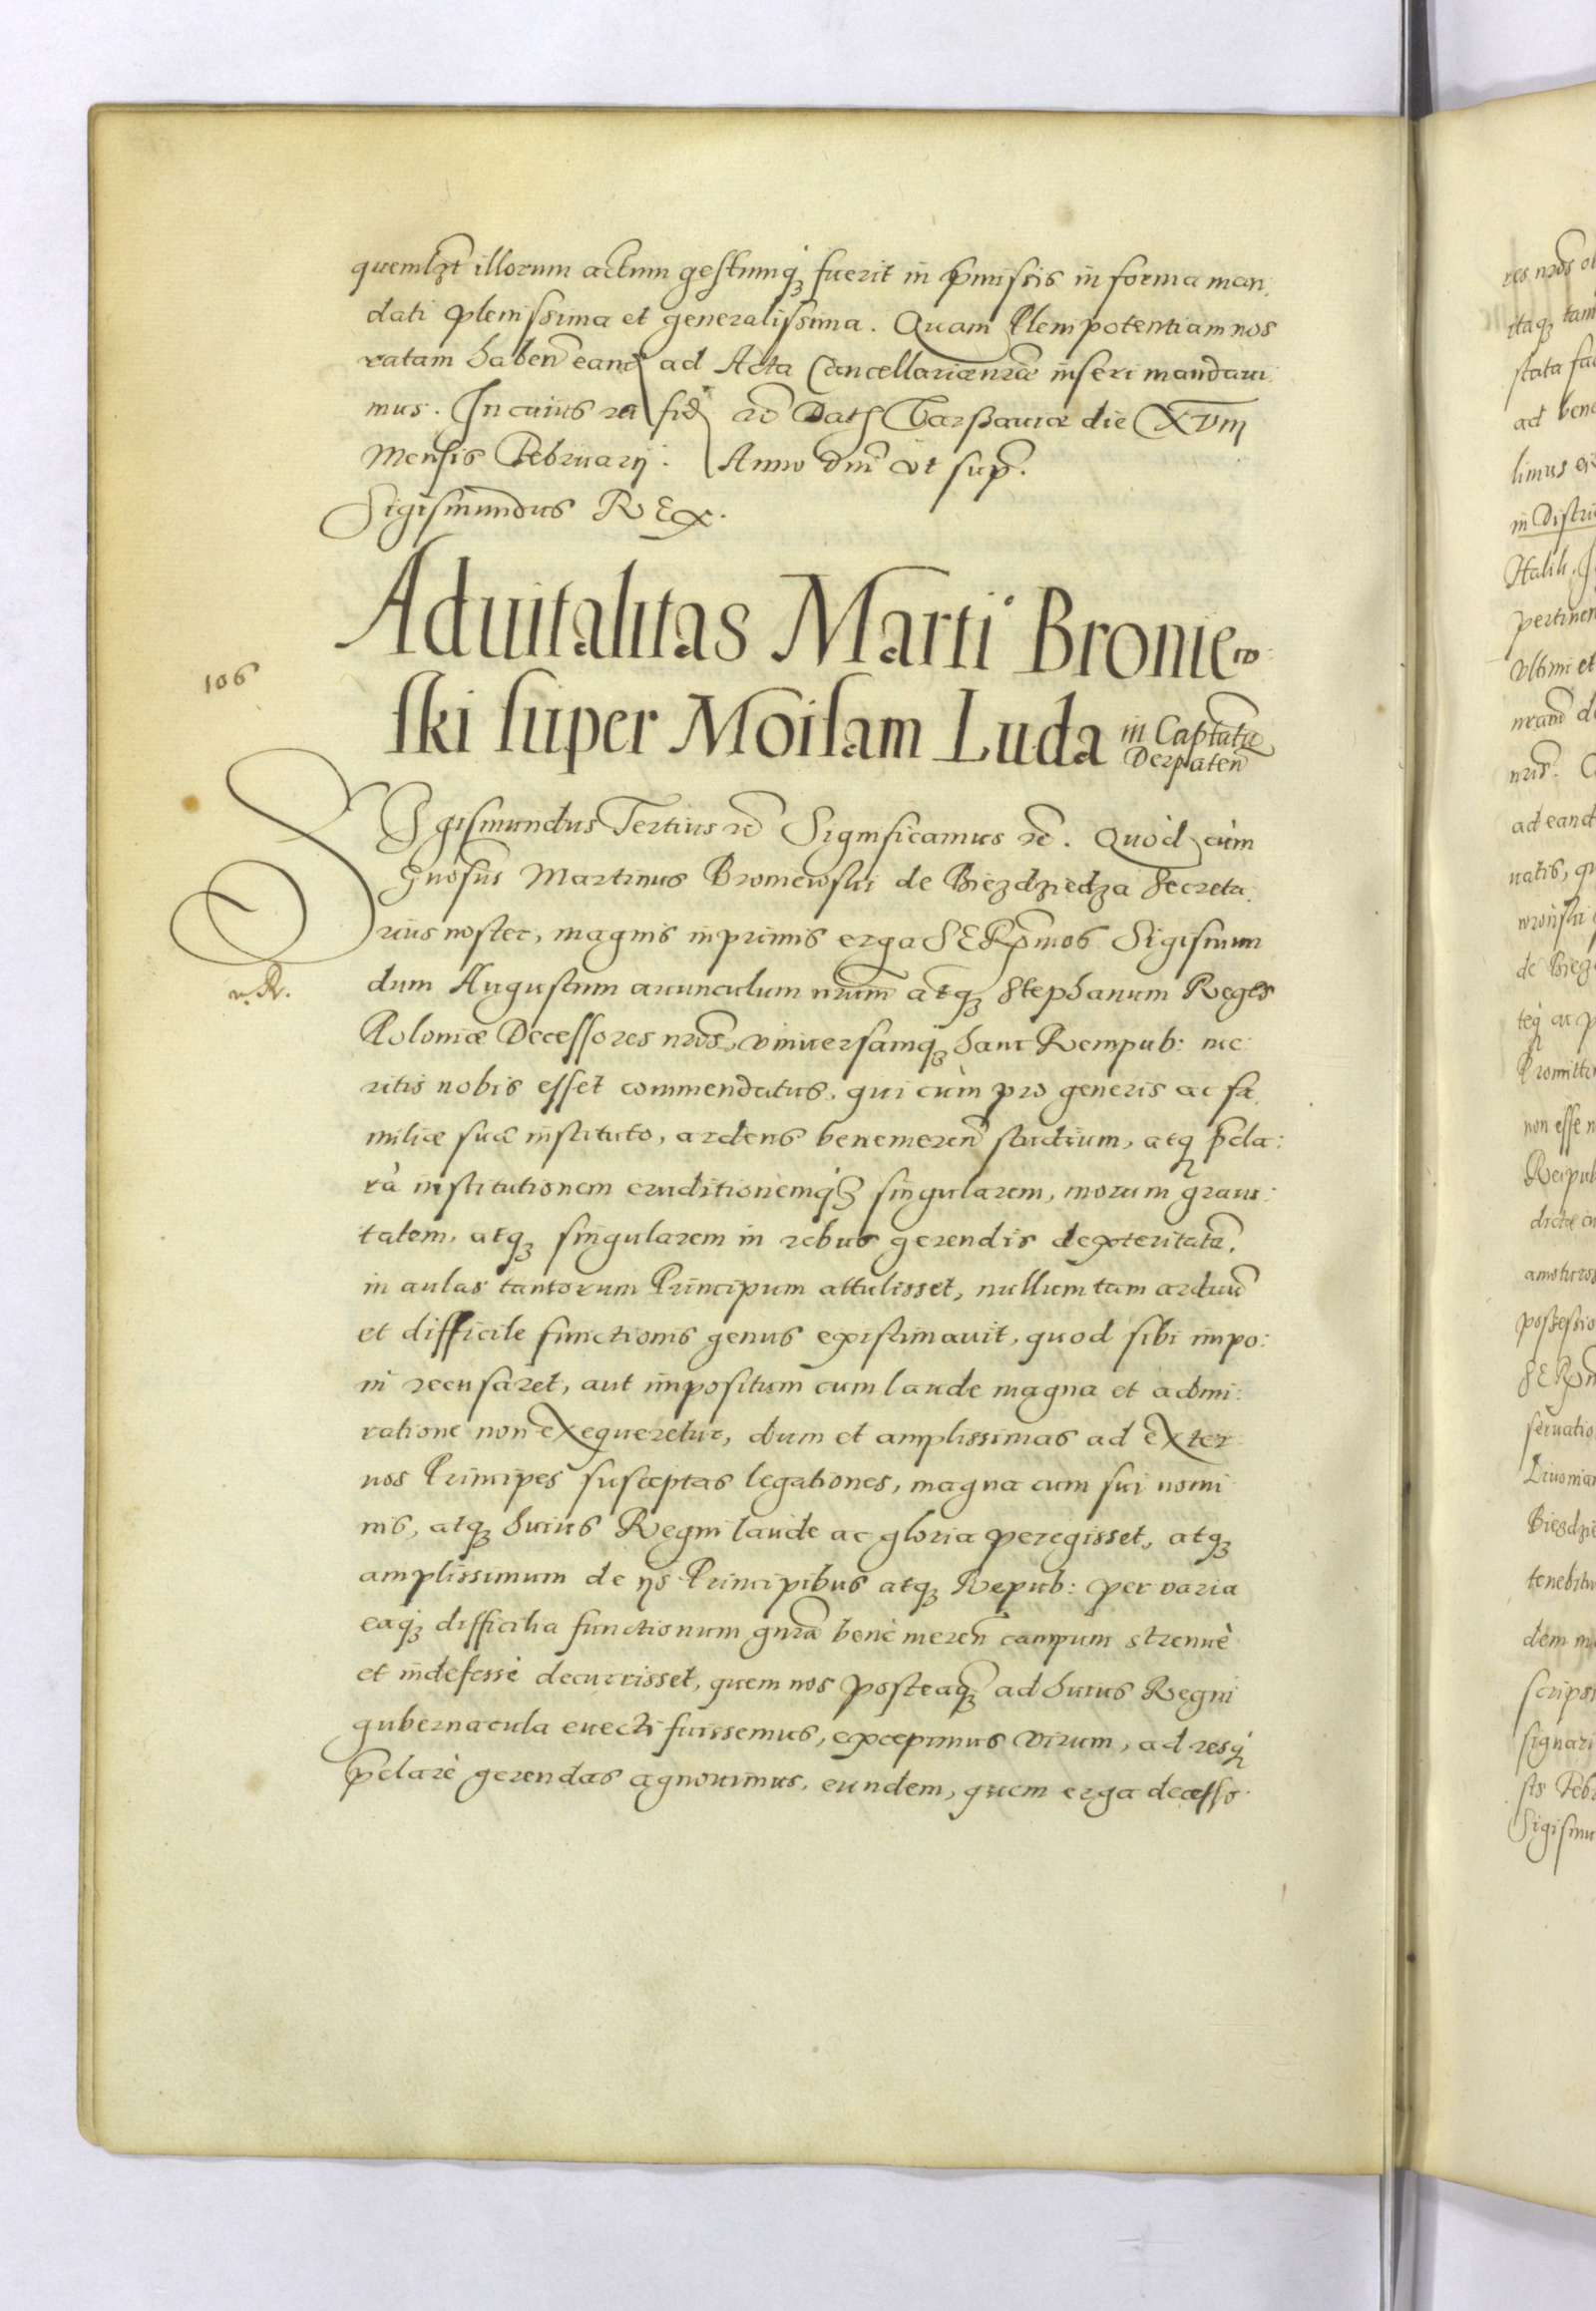 quemlzt illorum actum gestumq́ꝫ fuerit in pmissis in forma man:
dati plenissima et generalissima. Quam Plenipotentiam nos
ratam haben̄ eand ad Acta Cancellariæ nr̄æ inseri mandaui:
mus. In cuius rei fid rc̄ Datꝭ Varssauiæ die XVIII
Mensis Februarij. Anno dnī vt sup̄.
Sigismundus REx.
Aduitalitas Marti Broniew:
ski super Moisam Luda in Captatu
Derpaten̄
106
SIgismundus Tertius rc̄ Significamus rc̄. Quòd cùm
Gn̄osus Martinus Broniewski de Biezdziedza Secreta:
rius noster, magnis inprimis erga SERm̄os Sigismun
dum Augustum auunculum nr̄um atqꝫ Stephanum Reges
v. R.
Poloniæ Decessores nrōs, vniuersamq́ꝫ hanc Rempub: me:
ritis nobis esset commendatus, qui cùm pro generis ac fa:
miliæ suæ instituto, ardens benemeren̄ studium, atq p̄cla:
rā institutionem eruditionemq́ꝫ singularem, morum graui:
tatem, atqꝫ singularem in rebus gerendis dexteritatē,
in aulas tantorum Principum attulisset, nullum tam arduū
et difficile functionis genus existimauit, quod sibi impo:
ni recusaret, aut impositum cum laude magna et admi:
ratione non exequeretur, dum et amplissimas ad exter
nos Principes susceptas legationes, magna cum sui nomi
nis, atqꝫ huius Regni laude ac gloria peregisset, atqꝫ
amplissimum de ijs Principibus atqꝫ Repub: per varia
eaq́ꝫ difficilia functionum gn̄ra benè meren̄ campum strenuè
et indefessè decurrisset, quem nos posteaqꝫ ad huius Regni
gubernacula euecti fuissemus, excepimus virum, ad resq́
p̄clarè gerendas agnouimus, eundem, quem erga decesso:
res nrōs ob
itaqꝫ tam
stata fac
ad bene
limus
in Distric
Halih.
pertinen
vltimi et
nrand d
nrīs.
ad eand
natis, qu
wronski
de Biez
teq́ ac p
Promitte
non esse n
Reipub
dictæ
amoturos
possessio
SERm̄
seruatio
Diuoniar
Biezdzie
tenebitur
dem mo
scripsi
signari
sis Feb
Sigismu